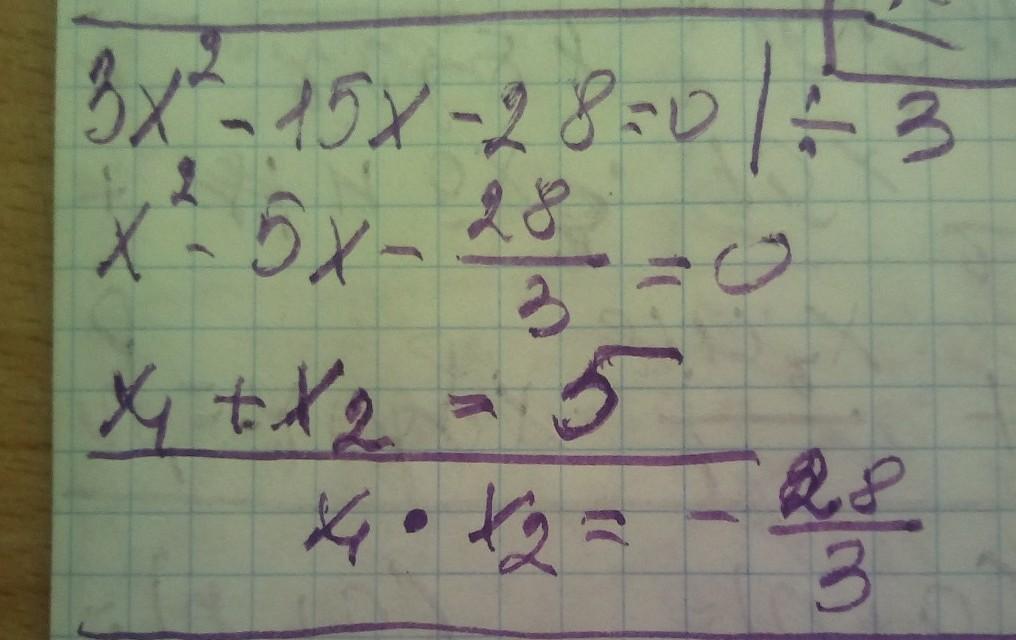 3x² - 15x - 28 = 0 | ÷ 3
x² - 5x - 28/3 = 0
x₁ + x₂ = 5
x₁ • x₂ = - 28/3